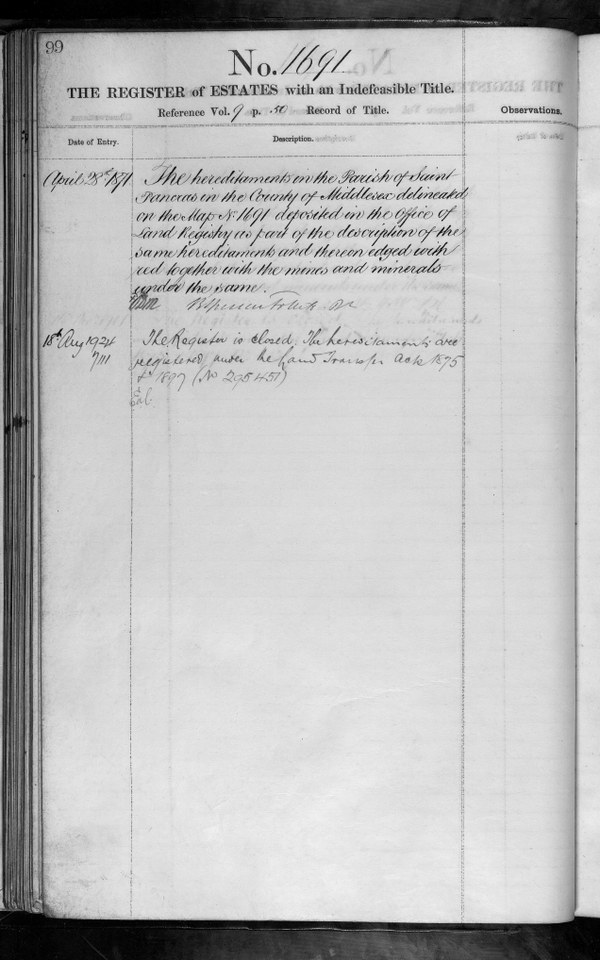 99
No. 1691
THE REGISTER of ESTATES with an Indefeasible Title.
Reference Vol. 9 p. 50 Record of Title.
Observations.
Date of Entry.
Description.
April 28th 1871
The hereditaments in the Parish of Saint
Pancras in the County of Middlesex delineated
on the Map No. 1691 deposited in the Office of
Land Registry as part of the description of the
same hereditaments and thereon edged with
red together with the mines and minerals
under the same.
18th Aug 1924
The Register is closed. The hereditaments are
registered under the Land Transfer Acts 1875
& 1897 (No 295451)